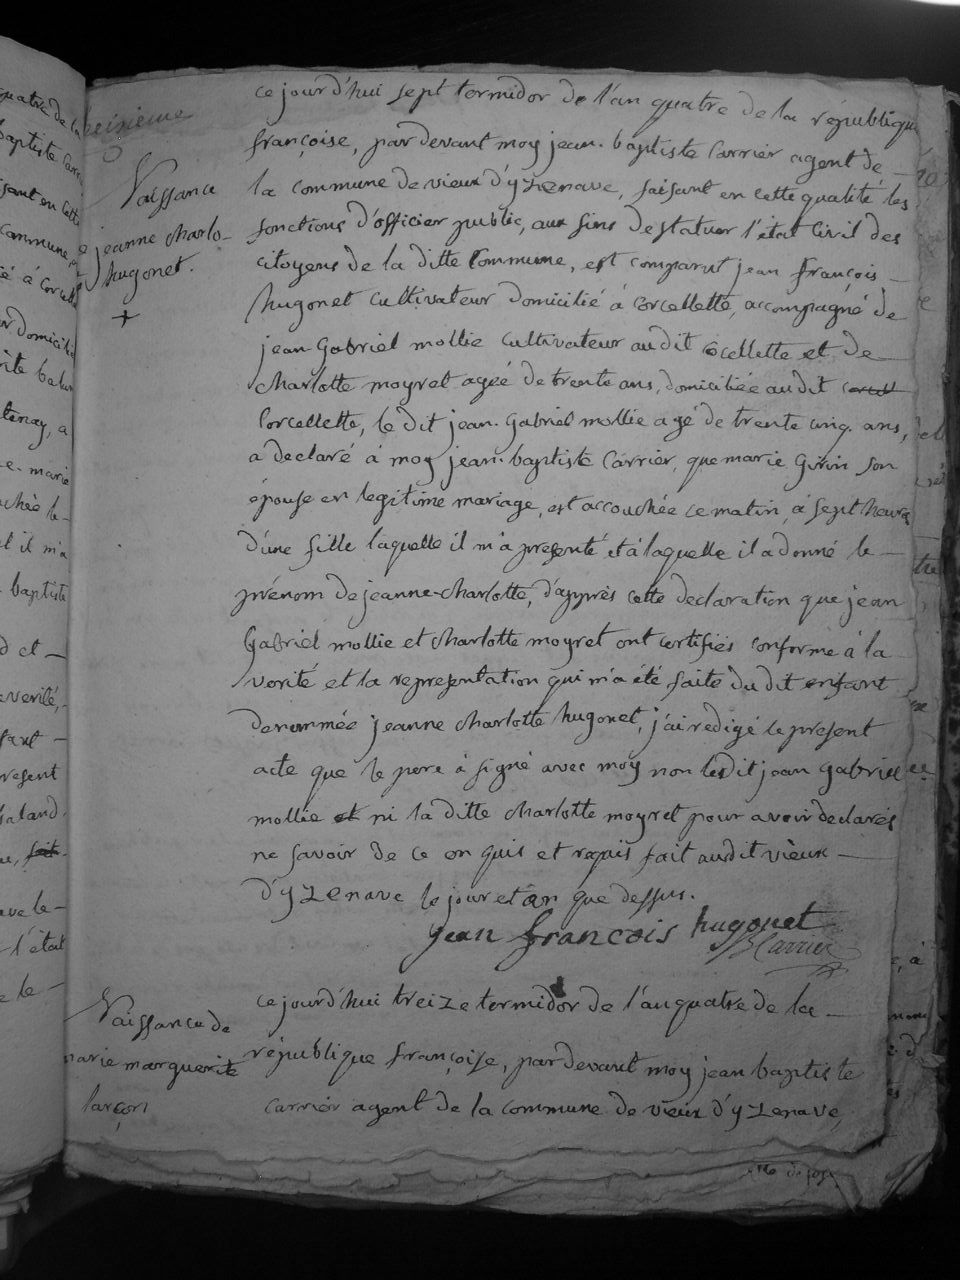 seizieme
Naissance
jeanne charlo-
hugonet.
+
ce jourd'hui sept termidor de l'an quatre de la république
françoise, par devant moy jean-baptiste Carrier agent de
la commune de vieux d'yzenave, faisant en cette qualité les
fonctions d'officier public, aux fins de statuer l'état Civil des
citoyens de la ditte Commune, est comparut jean françois
hugonet cultivateur domicilié à Corcellette, accompagné de
jean Gabriel mollie cultivateur au dit cocellette et de
charlotte moyret ageé de trente ans, domiciliée au dit
Corcellette, le dit jean-Gabriel mollie agé de trente cinq ans,
a declaré à moy jean-baptiste Carrier, que marie Girin son
épouse en legitime mariage, est accouchée ce matin, à sept heures
d'une fille laquelle il m'a presenté et à laquelle il a donné le
prénom de jeanne-charlotte, d'apprès cette declaration que jean
Gabriel mollie et charlotte moyret ont certifiés conforme à la
verité et la representation qui m'a été faite du dit enfant
denommée jeanne charlotte hugonet, j'ai redigé le present
acte que le pere à signé avec moy non ledit jean gabriel
mollie et ni la ditte charlotte moyret pour avoir declarés
ne savoir de ce en quis et rapuis fait audit vieux
d'yzenave le jour et an que dessus.
jean francois hugonet
Carrier
Naissance de
marie marguerite
larçon
ce jourd'hui treize termidor de l'an quatre de la
république françoise, par devant moy jean baptiste
carrier agent de la commune de vieux d'yzenave,